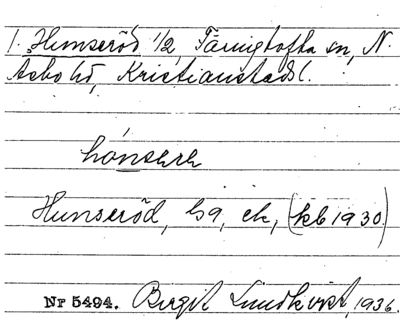 1. Hunseröd 1/2, Färingtofta sn, N.
Asbo hd, Kristianstads l.
hónsere
Hunseröd, ek, (kb 1930)
Nr 5494. Birgit Lundkvist, 1936.